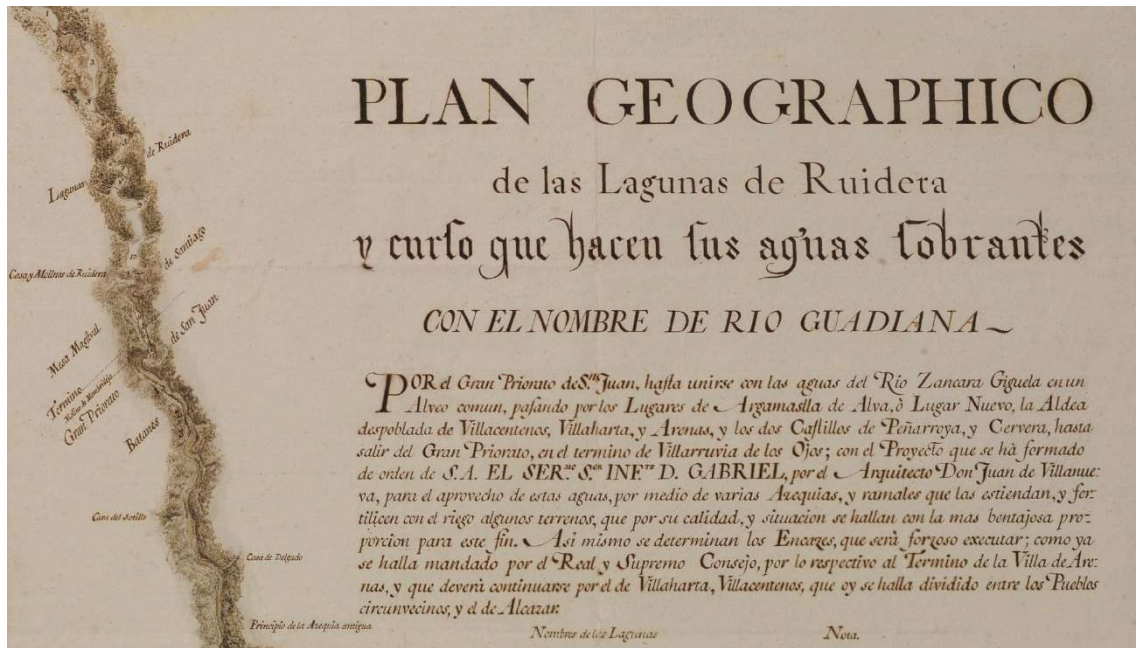 PLAN GEOGRAPHICO
de las Lagunas de Ruidera
y curso que hacen sus aguas sobrantes
CON EL NOMBRE DE RIO GUADIANA
POR el Gran Priorato de S.n Juan, hasta unirse con las aguas del Rio Zancara Giguela en un
Alveo comun, pasando por los Lugares de Argamasilla de Alva, ò Lugar Nuevo, la Aldea
despoblada de Villacentenos, Villaharta, y Arenas, y los dos Castillos de Peñarroya, y Cervera, hasta
salir del Gran Priorato, en el termino de Villarruvia de los Ojos; con el Proyecto que se hà formado
de orden de S.A. EL SER.mo S.or INF.te D. GABRIEL, por el Arquitecto Don Juan de Villanue-
va, para el aprovecho de estas aguas, por medio de varias Azequias, y ramales que las estiendan, y fer-
tilicen con el riego algunos terrenos, que por su calidad, y situacion se hallan con la mas bentajosa pro-
porcion para este fin. Asi mismo se determinan los Encazes, que serà forzoso executar; como ya
se halla mandado por el Real y Supremo Consejo, por lo respectivo al Termino de la Villa de Are-
nas, y que deverà continuarse por el de Villaharta, Villacentenos, que oy se halla dividido entre los Pueblos
circunvecinos, y el de Alcazar.
Nombres de las Lagunas
Nota.
Lagunas
de Ruidera
de Santiago
Casa y Molinos de Ruidera
de San Juan
Mesa Maglvil
Termino
Gran Priorato
Batanes
Casa de Delgado
Principio de la Azequia antigua